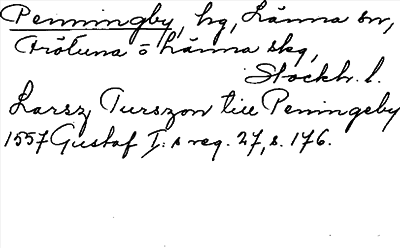 Penningby, hg, Länna sn,
Frötuna o Länna skg,
Stockh. l.
Larsz Turszon till Peningeby
1557 Gustaf I:s reg. 27, s. 176.